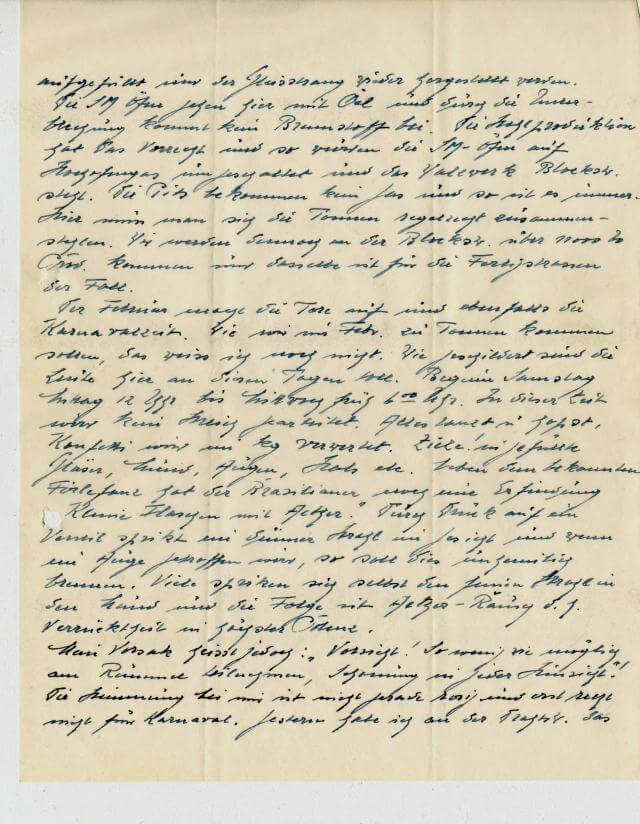 aufgefüllt und der Gleisstrang wieder hergestellt werden.
Die SM Öfen gehen hier mit Öel und durch die Unter-
brechung kommt kein Brennstoff bei. Die Stahlproduktion
hat das Vorrecht und so wurden die SM-Öfen auf
Hochofengas umgeschaltet und das Walzwerk Blockstr.
steht. Die Pits bekommen kein Gas und so ist es immer.
Hier muss man sich die Tonnen regelrecht zusammen-
stehlen. Wir werden demnach an der Blockstr. über
kommen und dasselbe ist für die Fertigstrassen
der Fall.
Der Februar macht die Tore auf und ebenfalls die
Karnevalzeit. Wie wir im Febr. zu Tonnen kommen
sollen, das weiss ich noch nicht. Wie geschildert sind die
Leute hier an diesen Tagen toll. Beginn Samstag
Mittag 12 Uhr bis Mittwoch früh 6 Uhr. In dieser Zeit
wird kein Streich gearbeitet. Alles tanzt u. hopst,
Konfetti wird in kg verwertet. Ziele! in gefüllte
Gläser, Mund, Augen, Hals etc. Neben dem bekannten
Firlefanz hat der Brasilianer noch eine Erfindung
"Kleine Flaschen mit Aether." Durch Druck auf ein
Ventil spritzt ein dünner Strahl ins Gesicht und wenn
ein Auge getroffen wird, so soll dies unheimlich
brennen. Viele spritzen sich selbst den feinen Strahl in
den Mund und die Folge ist Aether-Rausch d. h.
Verrücktheit in höchster Potenz.
Mein Vorsatz heisst jedoch: "Vorsicht! So wenig wie möglich
am Rummel teilnehmen, Schonung in jeder Hinsicht"!
Die Stimmung bei mir ist nicht gerade rosig und erst recht
nicht für Karneval. Gestern habe ich an der Drahtstr. das